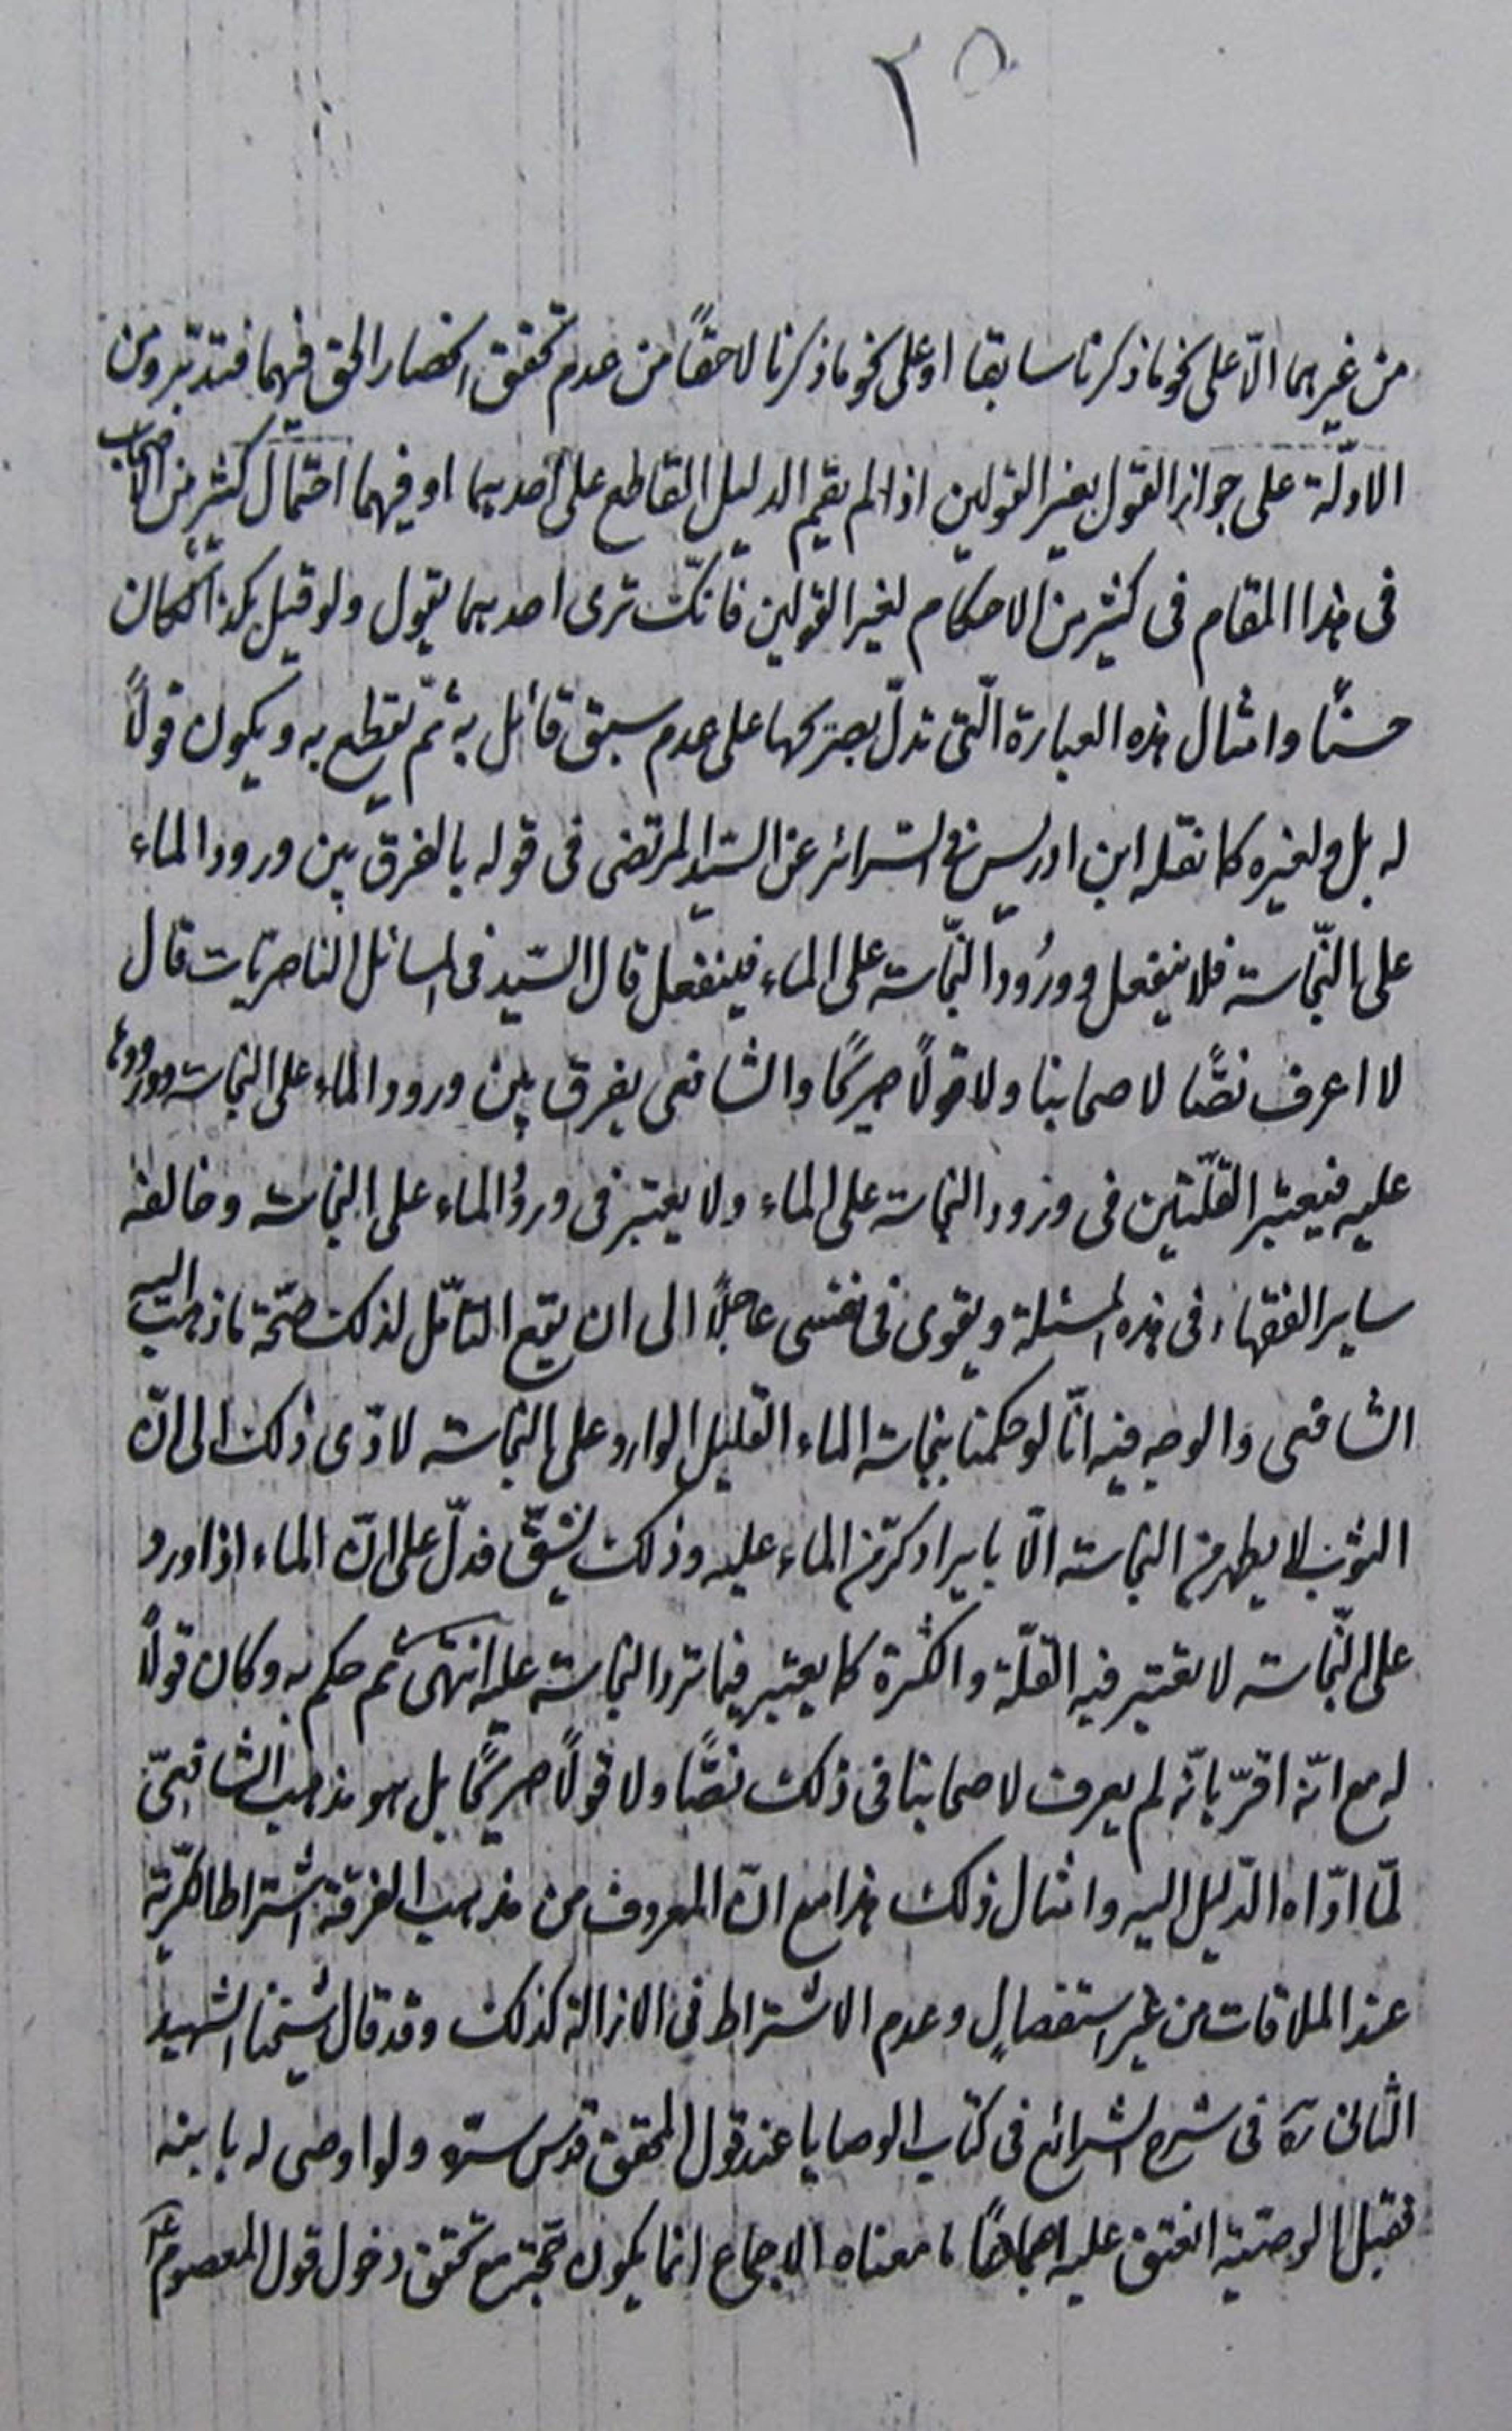 ٢٥
من غيرهما الّا على نحو ما ذكرنا سابقا او على نحو ما ذكرنا لاحقاً من عدم تحقق انحصار الحق فيهما فتدبّر ومن
الادلّة على جواز القول بغير القولين اذا لم يقم الدليل القاطع على احدهما او فيهما احتمال كثير من الاصحاب
فى هذا المقام فى كثير من الاحكام لغير القولين فانّك ترى احدهما يقول ولو قيل بكذا لكان
حسنًا وامثال هذه العبارة الّتى تدلّ بصريحها على عدم سبق قائل به ثمّ يقطع به ويكون قولاً
له بل ولغيره كما نقله ابن ادريس فى السّرائر عن السّيد المرتضى فى قوله بالفرق بين ورود الماء
على النّجاسة فلا ينفعل وورُود النّجاسة على الماء فينفعل قال السّيد فى المسائل الناصريّات قال
لا اعرف نصًّا لاصحابنا ولا قولاً صريحًا والشافعى يفرق بين ورود الماء على النجاسة وورودها
عليه فيعتبر القلّتين فى ورود النجاسة على الماء ولا يعتبر فى ورودُ الماء على النجاسة وخالفه
ساير الفقهاء فى هذه المسئلة ويقوى فى نفسى عاجلاً الى ان يقع التأمّل لذلك صحّة ما ذهب اليه
الشافعى والوجه فيه انّا لو حكمنا بنجاسة الماء القليل الوارد على النجاسة لادّى ذلك الى انّ
الثوب لا يطهر من النجاسة الّا بايراد كرّ من الماء عليه وذلك يشقّ فدلّ على انّ الماء اذا ورد
على النّجاسة لا يعتبر فيه القلّة والكثرة كما يعتبر فيما ترد النجاسة عليه انتهى ثم حكم به وكان قولاً
له مع انّه اقرّ بانّه لم يعرف لاصحابنا فى ذلك نصًّا ولا قولاً صريحًا بل هو مذهب الشافعىّ
لمّا ادّاه الدّليل اليه وامثال ذلك هذا مع انّ المعروف من مذهب الفرقة اشتراط الكرّية
عند الملاقات من غير استفصالٍ وعدم الاشتراط فى الازالة كذلك وقد قال شيخنا الشهيد
الثانى ره فى شرح الشرائع فى كتاب الوصايا عند قول المحقق قدس سرّه ولو اوصى له بابنه
فقبل الوصيّة انعتق عليه اجماعًا ما معناه الاجماع انما يكون حجّة مع تحقق دخول قول المعصوم ع